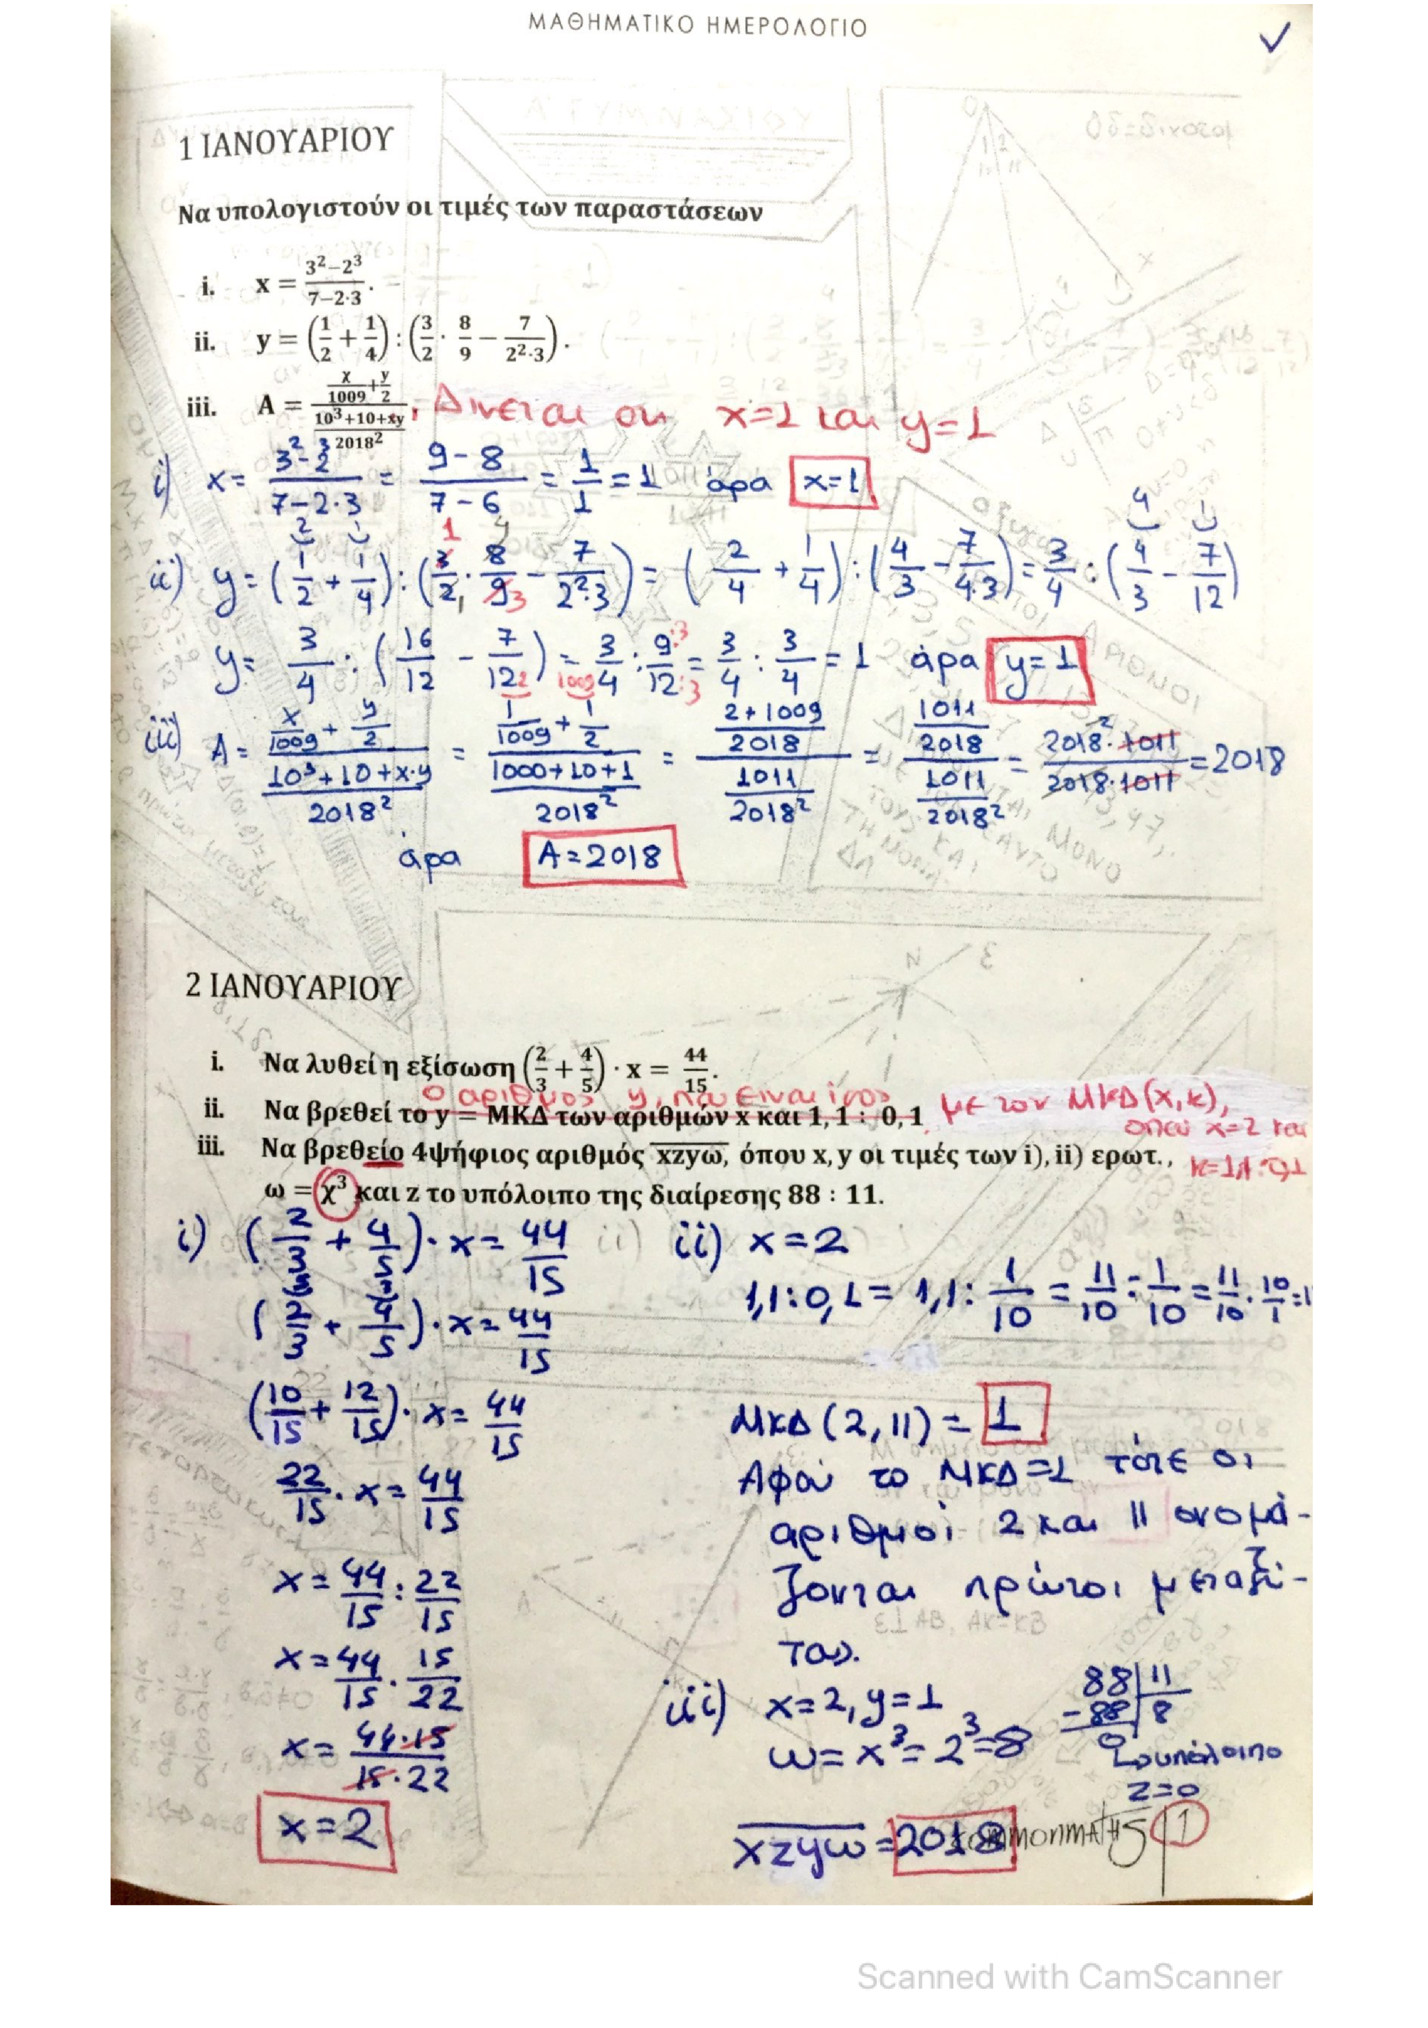 ΜΑΘΗΜΑΤΙΚΟ ΗΜΕΡΟΛΟΓΙΟ
1 ΙΑΝΟΥΑΡΙΟΥ
Να υπολογιστούν οι τιμές των παραστάσεων
i. x = (3²−2³)/(7−2·3).
ii. y = (1/2 + 1/4) : (3/2 · 8/9 − 7/(2²·3)).
iii. A = (x/1009 + y/2)/((10³+10+xy)/2018²). Δίνεται ότι x=1 και y=1
i) x = (3²−2³)/(7−2·3) = (9−8)/(7−6) = 1/1 = 1 άρα x=1
ii) y = (1/2 + 1/4) : (3/2 · 8/9 − 7/(2²·3)) = (2/4 + 1/4) : (4/3 − 7/(4·3)) = 3/4 : (4/3 − 7/12)
y = 3/4 : (16/12 − 7/12) = 3/4 : 9/12 = 3/4 : 3/4 = 1 άρα y=1
iii) A = (x/1009 + y/2)/((10³+10+x·y)/2018²) = (1/1009 + 1/2)/((1000+10+1)/2018²) = ((2+1009)/2018)/(1011/2018²) = (1011/2018)/(1011/2018²) = (2018²·1011)/(2018·1011) = 2018
άρα A=2018
2 ΙΑΝΟΥΑΡΙΟΥ
i. Να λυθεί η εξίσωση (2/3 + 4/5) · x = 44/15.
ο αριθμός y, που είναι ίσος
ii. Να βρεθεί το y = ΜΚΔ των αριθμών x και 1,1 : 0,1 με τον ΜΚΔ(x,κ),
όπου x=2 και
κ=1,1:0,1
iii. Να βρεθείο 4ψήφιος αριθμός xzyω, όπου x, y οι τιμές των i), ii) ερωτ.,
ω = χ³ και z το υπόλοιπο της διαίρεσης 88 : 11.
i) (2/3 + 4/5) · x = 44/15
(2/3 + 4/5) · x = 44/15
(10/15 + 12/15) · x = 44/15
22/15 · x = 44/15
x = 44/15 : 22/15
x = 44/15 · 15/22
x = (44·15)/(15·22)
x=2
ii) x=2
1,1:0,1 = 1,1 : 1/10 = 11/10 : 1/10 = 11/10 · 10/1 = 1
ΜΚΔ (2,11) = 1
Αφού το ΜΚΔ=1 τότε οι
αριθμοί 2 και 11 ονομά-
ζονται πρώτοι μεταξύ-
τους.
iii) x=2, y=1
ω = x³ = 2³ = 8
88 | 11
−88 | 8
0 υπόλοιπο
z=0
xzyω = 2018
COMMONMATHS | 1
Scanned with CamScanner